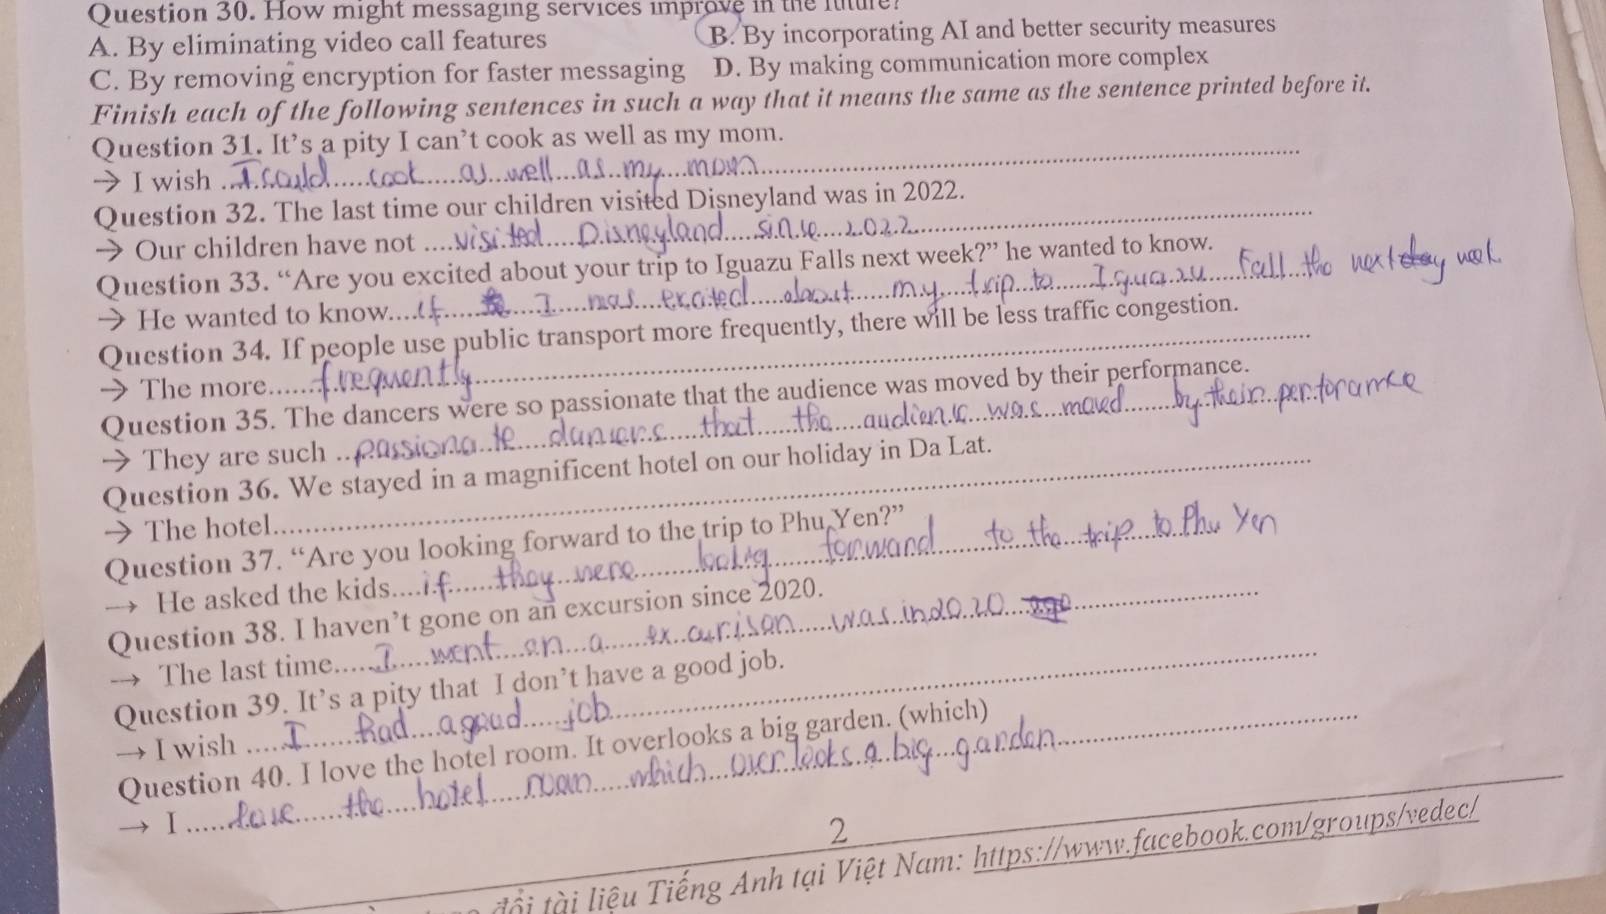 Question 30. How might messaging services improve in the future?
A. By eliminating video call features B. By incorporating AI and better security measures
C. By removing encryption for faster messaging D. By making communication more complex
Finish each of the following sentences in such a way that it means the same as the sentence printed before it.
Question 31. It's a pity I can't cook as well as my mom.
→ I wish I could cook as well as my mom
Question 32. The last time our children visited Disneyland was in 2022.
→ Our children have not visited Disneyland since 2022
Question 33. “Are you excited about your trip to Iguazu Falls next week?” he wanted to know.
→ He wanted to know if I was excited about my trip to Iguazu Fall the next week
Question 34. If people use public transport more frequently, there will be less traffic congestion.
→ The more frequently
Question 35. The dancers were so passionate that the audience was moved by their performance.
→ They are such passionate dancers that the audience was moved by their perforamce
Question 36. We stayed in a magnificent hotel on our holiday in Da Lat.
→ The hotel
Question 37. “Are you looking forward to the trip to Phu Yen?”
→ He asked the kids if they were looking forward to the trip to Phu Yen
Question 38. I haven't gone on an excursion since 2020.
→ The last time I went on a excurison was in 2020
Question 39. It's a pity that I don't have a good job.
→ I wish I had a good job
Question 40. I love the hotel room. It overlooks a big garden. (which)
→ I love the hotel room which overlooks a big garden
2
đổi tài liệu Tiếng Anh tại Việt Nam: https://www.facebook.com/groups/vedec/